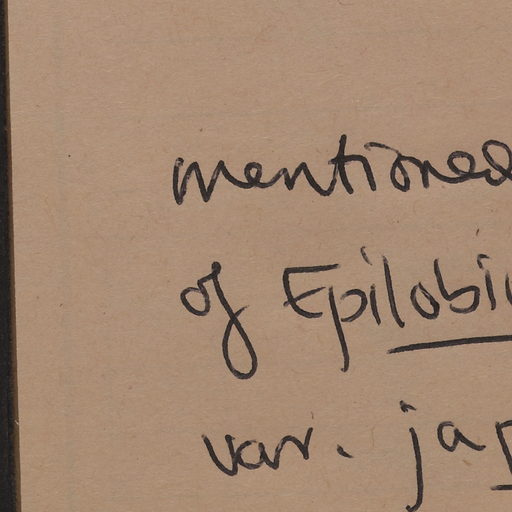 mentioned
of Epilobi
var. jap